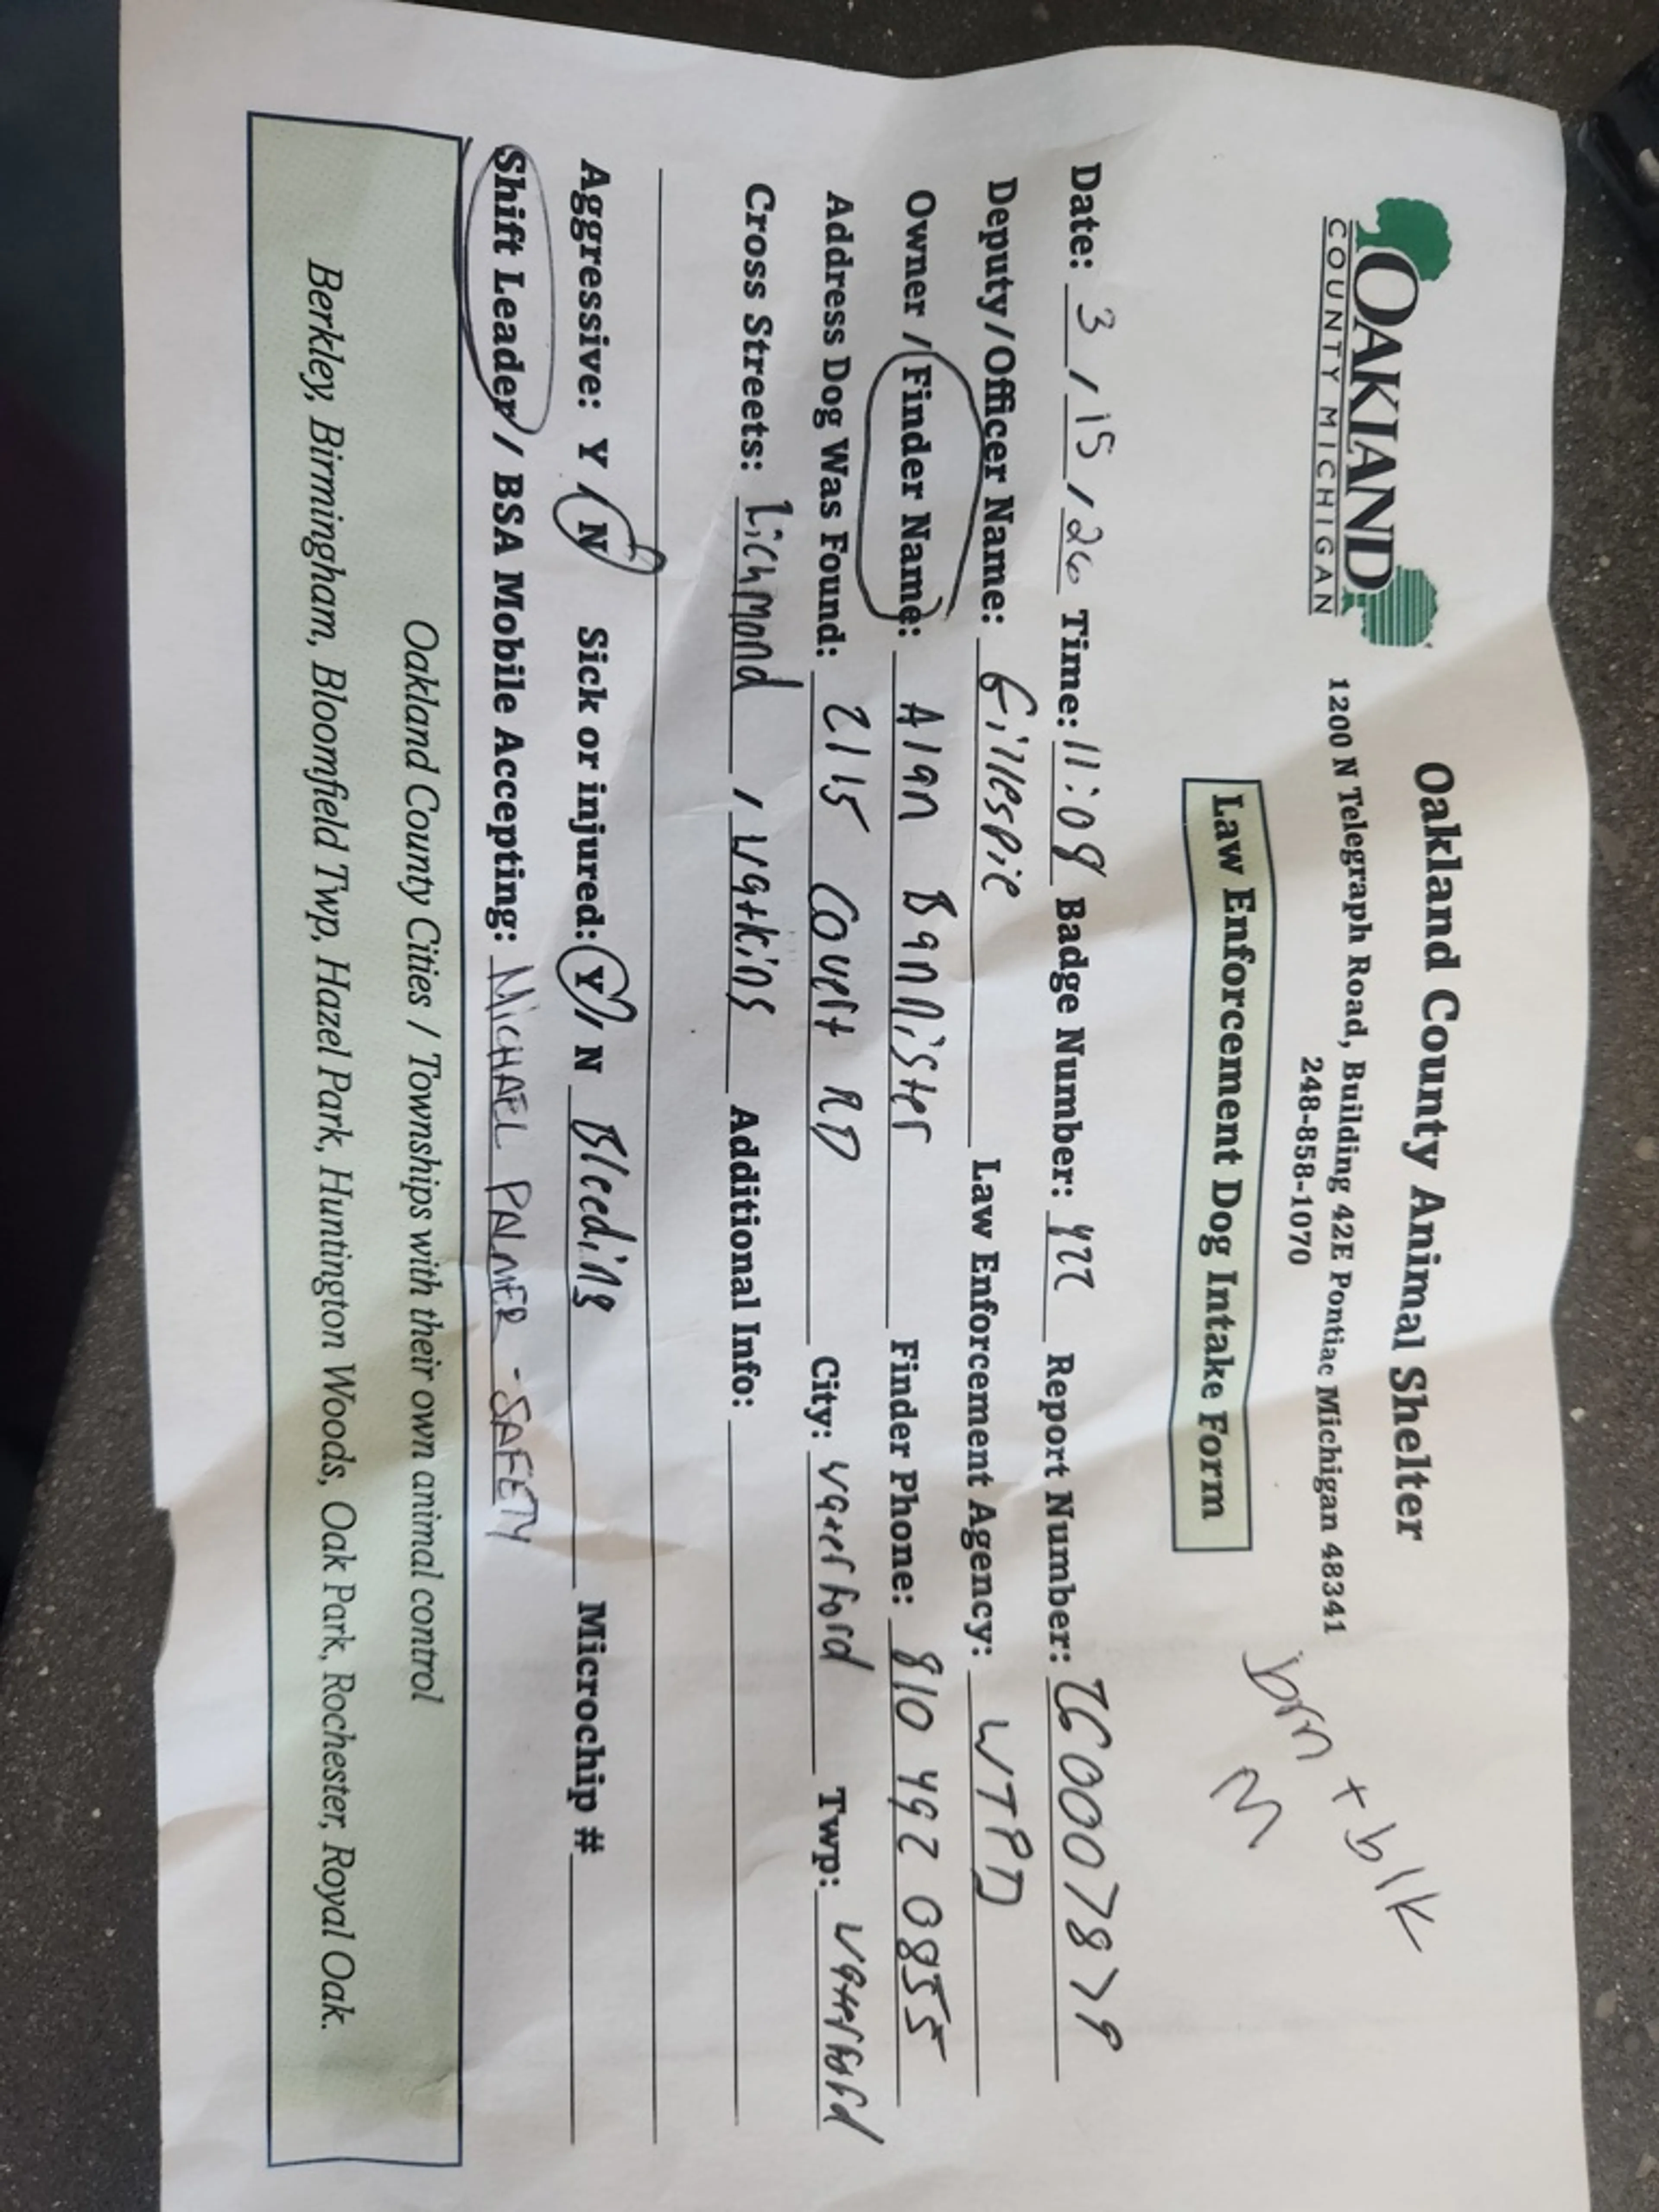 OAKLAND
COUNTY MICHIGAN
Oakland County Animal Shelter
1200 N Telegraph Road, Building 42E Pontiac Michigan 48341
248-858-1070
brn + blk
M
Law Enforcement Dog Intake Form
Date: 3 / 15 / 26 Time: 11:08 Badge Number: 422 Report Number: 260007879
Deputy/Officer Name: Gillespie Law Enforcement Agency: WTPD
Owner / Finder Name: Alan Bannister Finder Phone: 810 492 0855
Address Dog Was Found: 2115 Covert RD City: Waterford Twp: Waterford
Cross Streets: Lichmond / Watkins Additional Info:
Aggressive: Y / N Sick or injured: Y / N Bleeding Microchip #
Shift Leader / BSA Mobile Accepting: MICHAEL PALMER - SAFETY
Oakland County Cities / Townships with their own animal control
Berkley, Birmingham, Bloomfield Twp, Hazel Park, Huntington Woods, Oak Park, Rochester, Royal Oak.